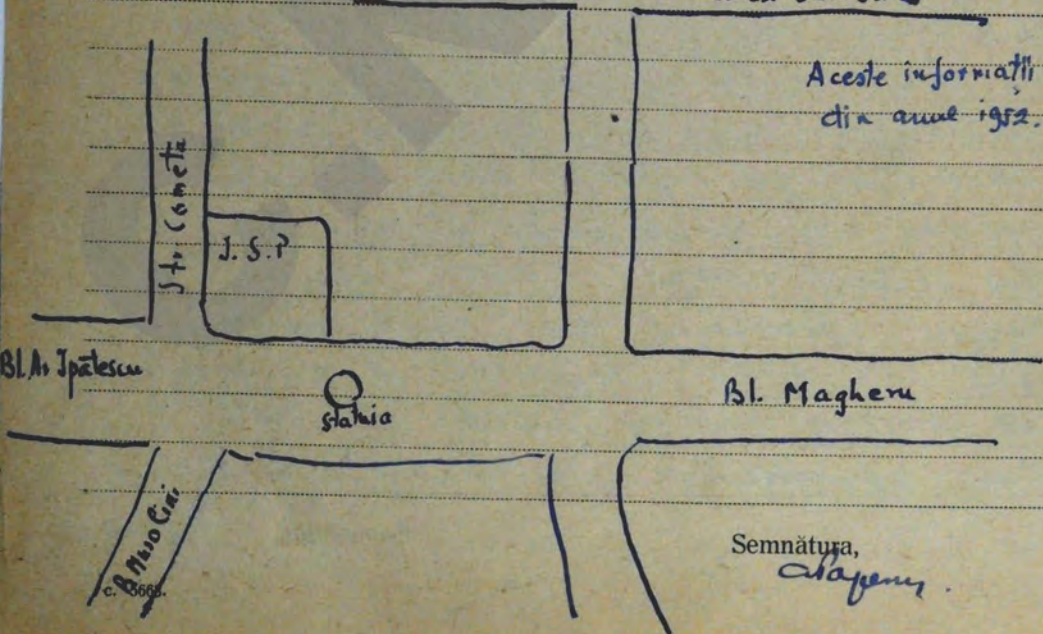 Aceste informații
din anul 1952.
Str. Cometa
I. S. P
Bl. A. Ipătescu
statuia
Bl. Magheru
B. Musolini
Semnătura,
c. 5668.